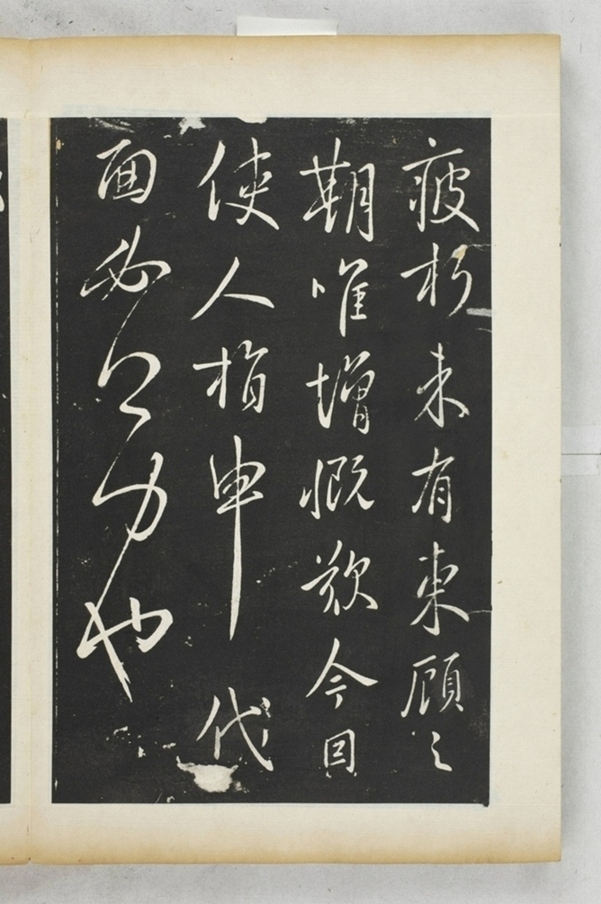 疲朽未有東顧之
期唯增慨歎今因
使人指申 代
面必公力也